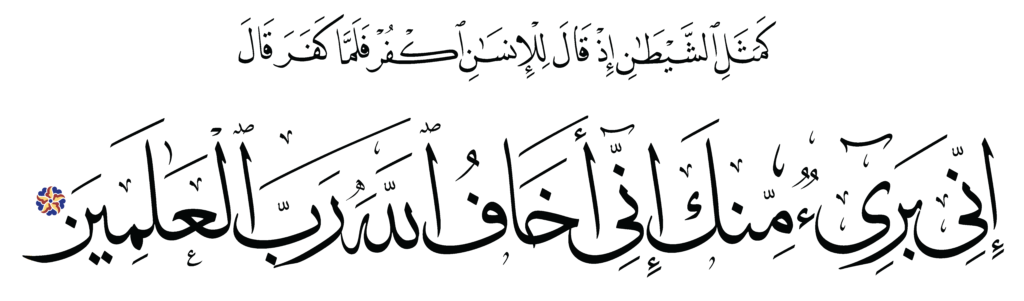 كَمَثَلِ ٱلشَّيْطَٰنِ إِذْ قَالَ لِلْإِنسَٰنِ ٱكْفُرْ فَلَمَّا كَفَرَ قَالَ
إِنِّي بَرِيٓءٌ مِّنكَ إِنِّيٓ أَخَافُ ٱللَّهَ رَبَّ ٱلْعَٰلَمِينَ